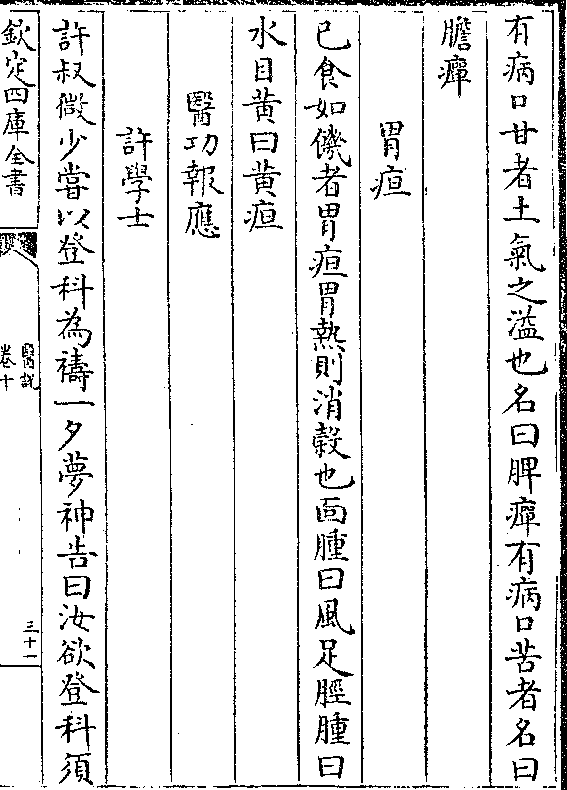 有病口甘者土氣之溢也名曰脾癉有病口苦者名曰
膽癉
胃疸
已食如饑者胃疸胃熱則消穀也面腫曰風足脛腫曰
水目黄曰黄疸
醫功報應
許學士
許叔微少嘗以登科為禱一夕夢神告曰汝欲登科須
欽定四庫全書
醫說
卷十
三十一